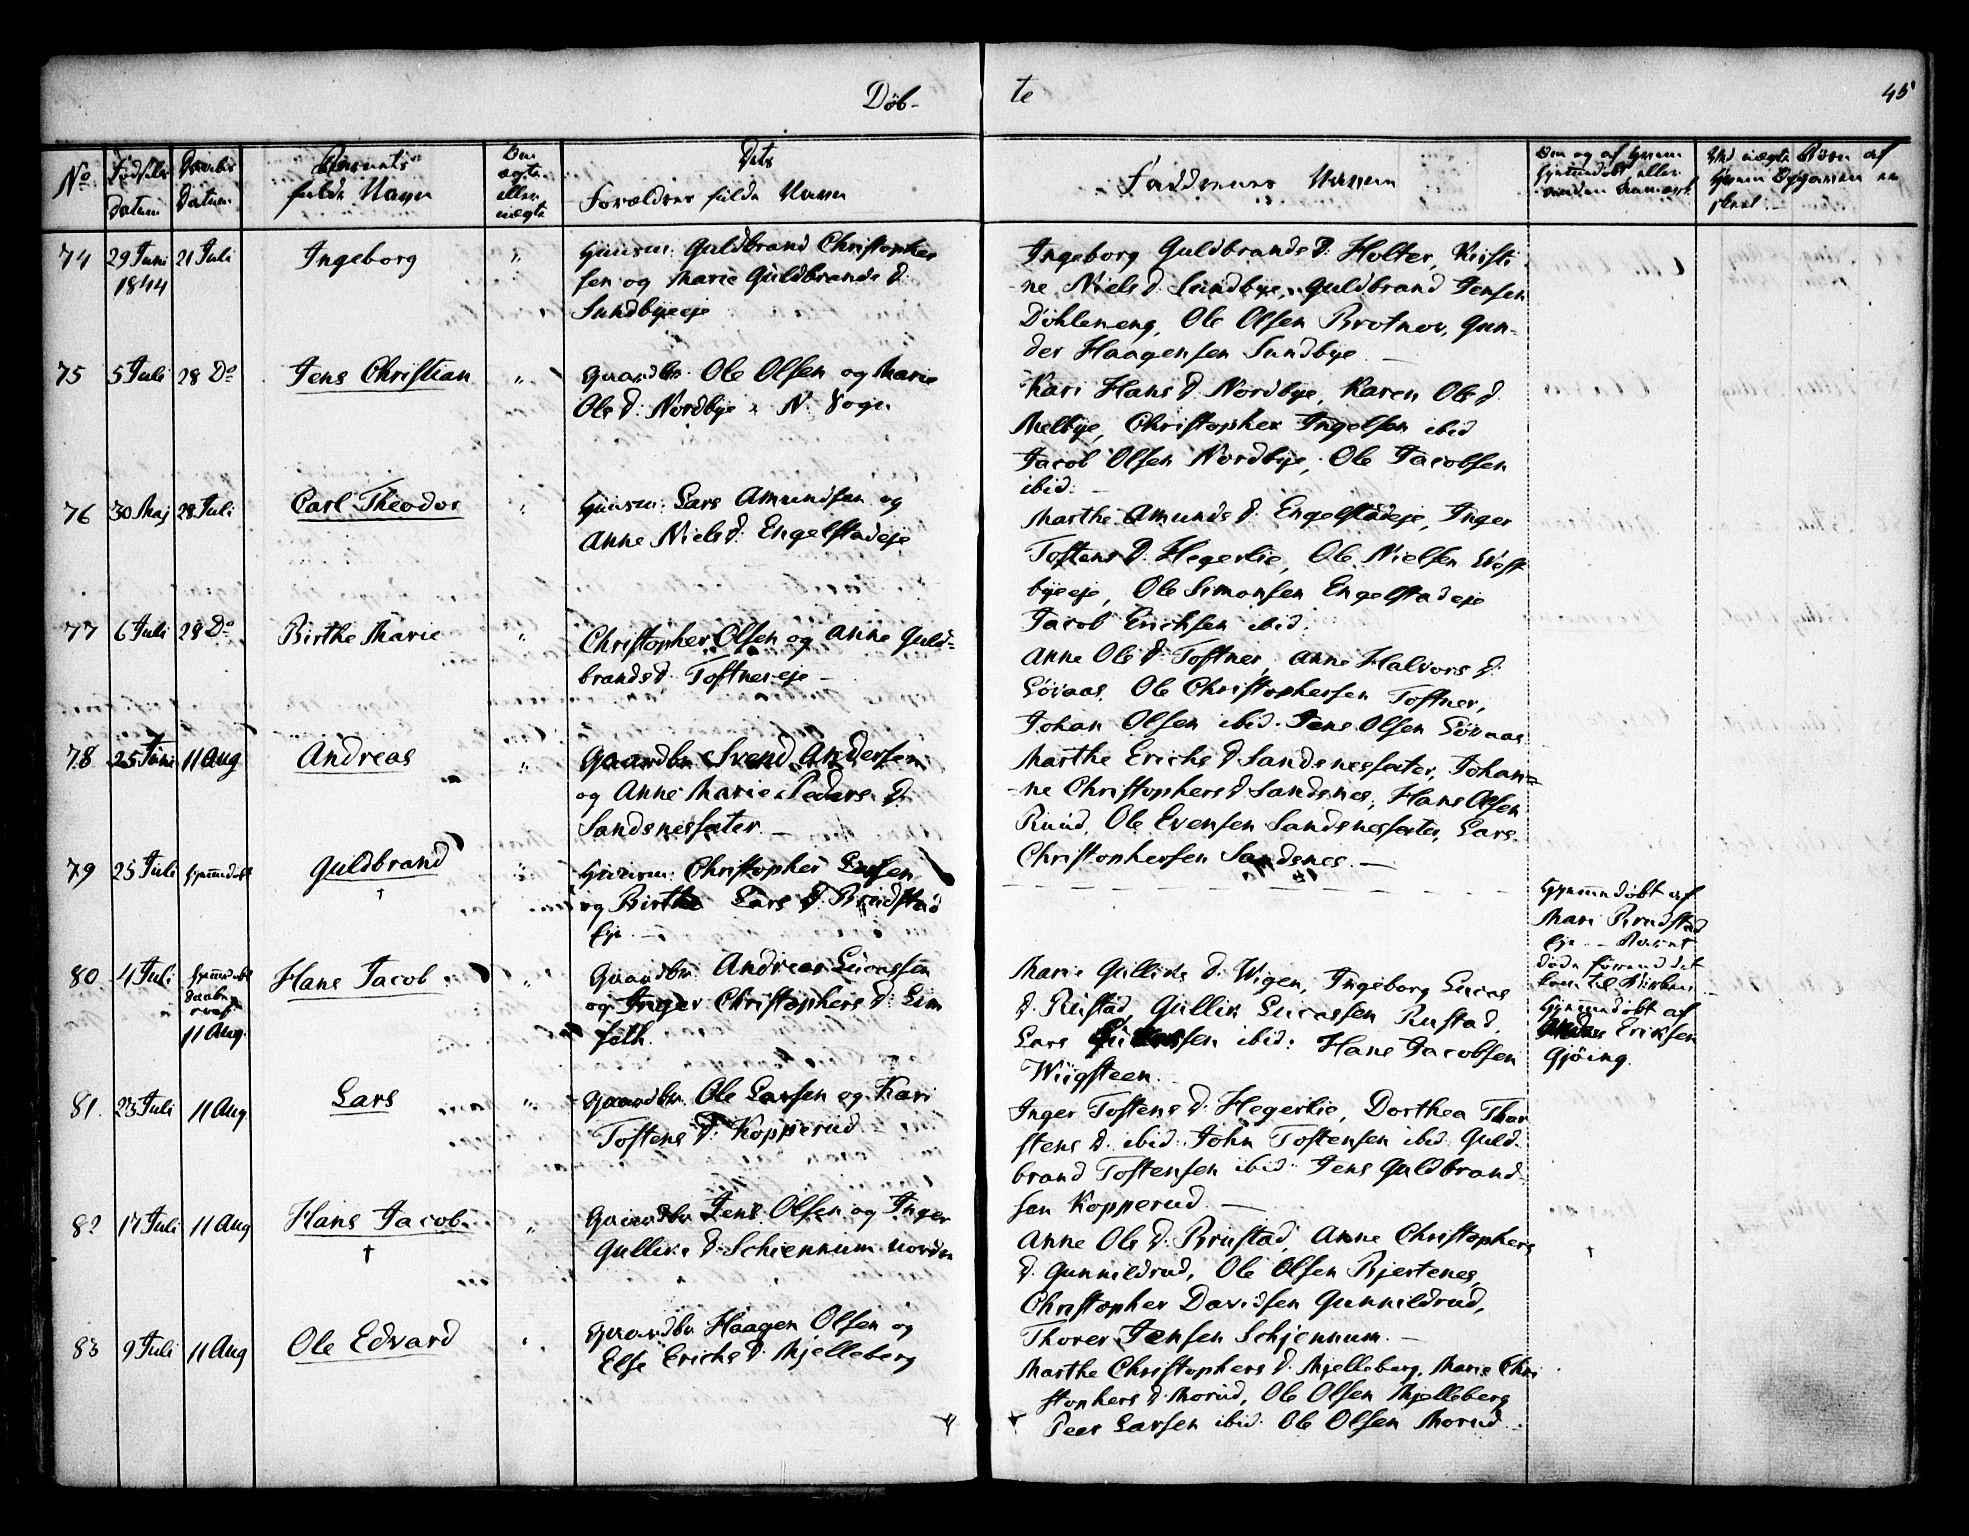 Döb-
te
45
No
Fødsels
Datum
Daabs
Datum
Barnets
fulde Navn
Om
ægte
eller
uægte
Dets
Forældres fulde Navn
Faddernes Navne
74
29 Juni
1844
21 Juli
Ingeborg
"
Huusm: Guldbrand Christopher
sen og Marie Guldbrands D:
Sundbyeeje
Ingeborg Guldbrands D: Holter, Kirsti
ne Niels D. Sundbye, Guldbrand Jensen
Döhleneng, Ole Olsen Brotnov, Gun-
der Haagensen Sundbye
75
5 Juli
28 Do
Jens Christian
"
Gaardbr. Ole Olsen og Marie
Ols D: Nordbye N. Sogn
Kari Hans D. Nordbye, Karen Ole D.
Melbye, Christopher Ingelsen ibid
Jacob Olsen Nordbye, Ole Jacobsen
ibid:
76
30 Maj
28 Juli
Carl Theodor
"
Huusm: Lars Amundsen og
Anne Niels D: Engelstadeje
Marthe Amunds D. Engelstadeje, Inger
Tostens D. Hegerlie, Ole Nielsen West
byeeje, Ole Simonsen Engelstadeje
Jacob Erichsen ibid.
77
6 Juli
28 Do
Birthe Marie
"
Christopher Olsen og Anne Guld-
brands D. Toftnereje
Anne Ole D: Toftner, Anne Halvors D:
Lövaas, Ole Christophersen Toftner,
Johan Olsen ibid. Jens Olsen Lövaas
78
25 Juni
11 Aug
Andreas
"
Gaardbr Svend Andersen
og Anne Marie Peders D:
Sandsnessæter
Marthe Erichs D Sandsnessæter, Johan=
ne Christophers D Sandsnes, Hans Olsen
Ruud, Ole Evensen Sandsnessæter, Lars
Christophersen Sandsnes.
79
25 Juli
Hjemmedøbt
Guldbrand
†
"
Huusm: Christopher Larsen
og Birthe Lars D: Brudstad
Eje
Hjemmedøbt af
Mari Brudstad
Eje - Barnet
døde førend det
kom til Kirken
80
4 Juli
Hjemmedøbt
11 Aug.
Hans Jacob
"
Gaardbr. Andreas Lucassen
og Inger Christophers D:
Marie Gulliks D: Wigen, Ingeborg Lucas
D. Rustad, Gullik Lucassen Rustad,
Lars ibid: Hans Jacobsen
Wiigsteen
Hjemmedøbt af
Eriksen
Gjöing.
81.
23 Juli
11 Aug
Lars
"
Gaardbr Ole Larsen og Kari
Tostens D: Kopperud
Inger Tostens D: Hegerlie, Dorthea Thor
stens D. ibid. John Tostensen ibid Guld-
brand Tostensen ibid: Jens Guldbrand
sen Kopperud.
82
17 Juli
11 Aug
Hans Jacob
†
"
Gaardbr Jens Olsen og Inger
Gulliks D: Schiennum nordre
Anne Ole D: Brustad, Anne Christophers
D. Gunnildrud, Ole Olsen Bjertenes,
Christopher Davidsen Gunnildrud,
Thorer Jensen Schjennum.
83
9 Juli
11 Aug
Ole Edvard
"
Gaardbr Haagen Olsen og
Else Erichs D: Mjelleberg
Marthe Christophers D. Mjelleberg, Marie Chri
stophers D: Morud, Ole Olsen Mjelleberg
Peer Larsen ibid. Ole Olsen Morud.